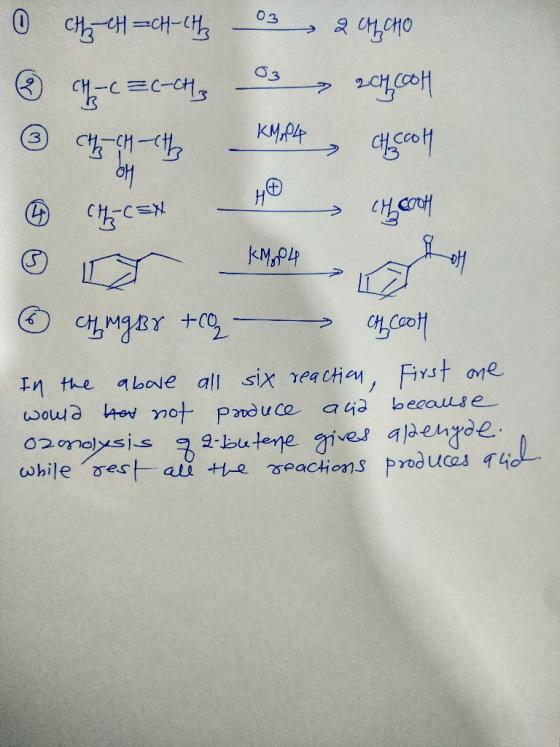 ① CH3-CH=CH-CH3 O3 → 2 CH3CHO
② CH3-C≡C-CH3 O3 → 2CH3COOH
③ CH3-CH-CH3 KMnO4 → CH3COOH
OH
④ CH3-C≡N H⊕ → CH3COOH
⑤ KMnO4 → O OH
⑥ CH3MgBr + CO2 → CH3COOH
In the above all six reaction, First one
would not produce acid because
ozonolysis of 2-butene gives aldehyde.
while rest all the reactions produces acid.